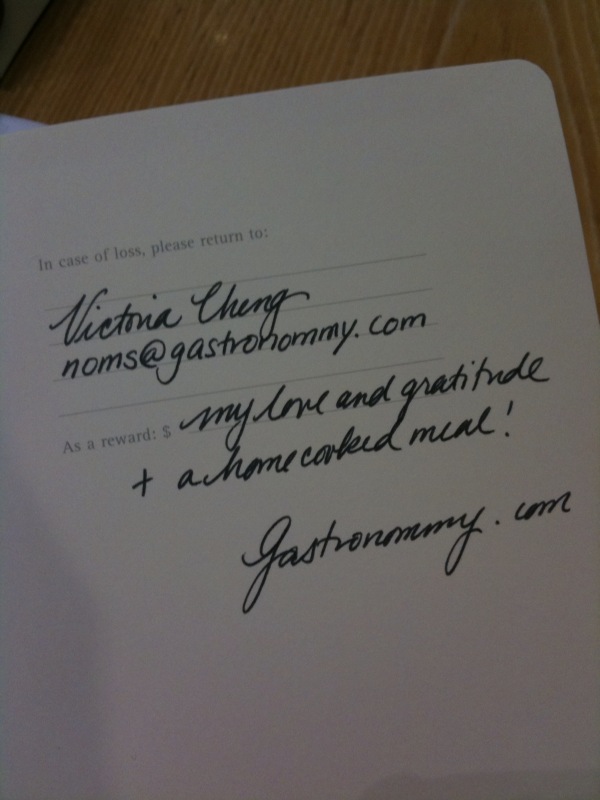 In case of loss, please return to:
Victoria Cheng
noms@gastronommy.com
As a reward: $ my love and gratitude
+ a home cooked meal!
Gastronommy.com